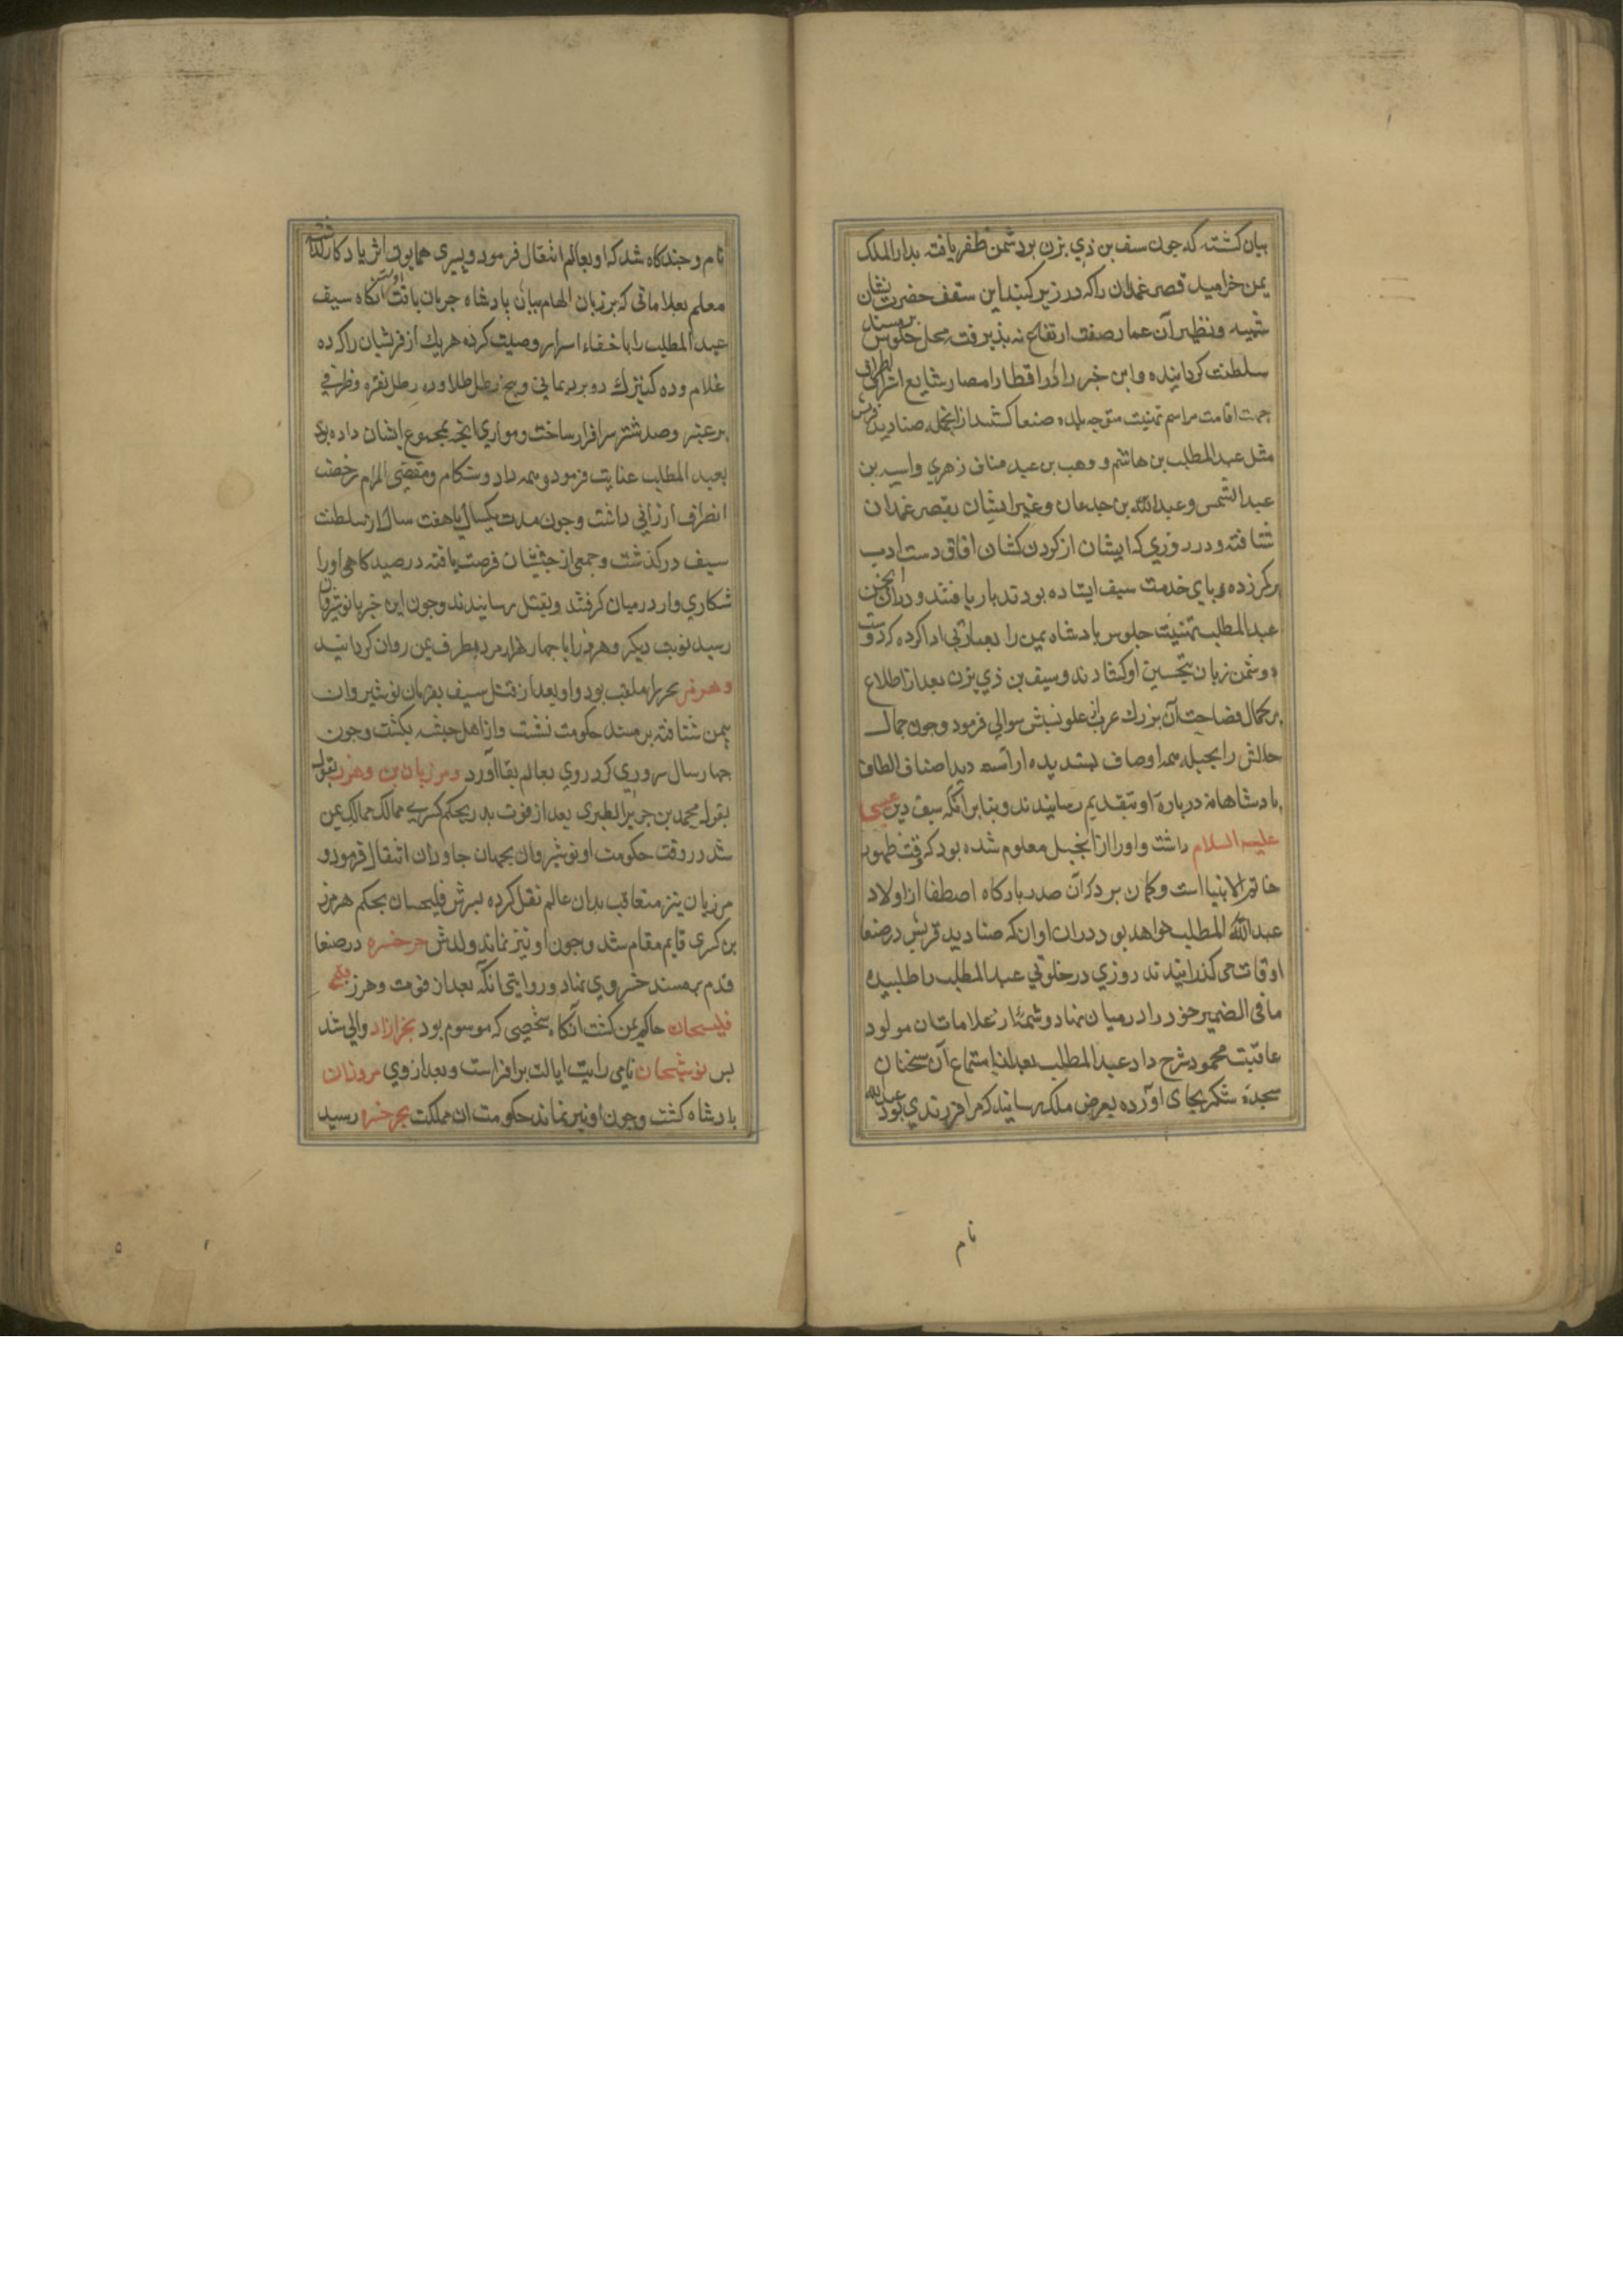 بیان کشته که چون سیف بن ذی یزن بر دشمن ظفر یافته بدار الملک
یمن خرامید قصر غمدان را که در زیر کنبد این سقف حضرت نشان
شبیه و نظیر آن عمارت صفت ارتفاع نه پذیرفت محل جلوس بر مسند
سلطنت کردانیده و این خبر را در اقطار امصار شایع اشراف اطراف
جهت اقامت مراسم تهنیت متوجه بلده صنعا کشتند از انجمله صنادید قریش
مثل عبد المطلب بن هاشم و وهب بن عبد مناف زهری و اسیه بن
عبد الشمس و عبد الله بن جدعان و غیر ایشان بقصر غمدان
شتافته و در روزی که ایشان از کردن کشان افاق دست ادب
بر کمر زده و بپای خدمت سیف ایستاده بودند بار یافتند و در ان انجمن
عبد المطلب تهنیت جلوس پادشاه یمن را بعبارتی ادا کرده که دوست
و دشمن زبان بتحسین او کشادند و سیف بن ذی یزن بعد از اطلاع
بر کمال فصاحت آن بزرک عرب از علو نسبش سوالی فرمود و چون جمال
حالش را بجمله سمه اوصاف پسندیده اراسته دید اصناف الطاف
پادشاهانه درباره او بتقدیم رسانیدند و بنا بر آنکه سیف دین عیسی
علیه السلام داشت و او را از انجیل معلوم شده بود که وقت ظهور
خاتم الانبیا است و کمان برد که آن صدر بارکاه اصطفا از اولاد
عبد الله المطلب خواهد بود در ان اوان که صنادید قریش در صنعا
اوقات می کذرانیدند روزی در خلوتی عبد المطلب را طلبیده
ما فی الضمیر خود را در میان نهاد و شمهٔ از علامات ان مولود
عاقبت محمود شرح داد عبد المطلب بعد از استماع آن سخنان
سجده شکر بجای آورده بعرض ملک رسانید که مرا فرزندی بود عبد الله
نام
نام و چندکاه شد که او بعالم انتقال فرمود و پسری همایون اثر یادکار کذاشته
معلم بعلاماتی که بر زبان الهام بیان پادشاه جریان یافت آنکاه سیف
عبد المطلب را باخفاء اسرار وصیت کرده هر یک از قرشیان را که ده
غلام و ده کنیزک دو برد یمانی و پنج رطل طلا و ده رطل نقره و ظرفی
پر عنبر و صد شتر سرافراز ساخت و موازی انچه بمجموع ایشان داده بود
بعبد المطلب عنایت فرمود و همه را دوستکام و مقضی المرام رخصت
انصراف ارزانی داشت و چون مدت یکسال یا هفت سال از سلطنت
سیف درکذشت و جمعی از حبشیان فرصت یافته در صیدکاهی او را
شکاری وار در میان کرفتند و بقتل رسانیدند و چون این خبر بانوشیروان
رسید نوبت دیکر وهرز را با چهار هزار مرد بطرف یمن روان کردانید
وهرز بحرزاد ملقب بود و او بعد از قتل سیف بفرمان نوشیروان
بیمن شتافته بر مسند حکومت نشست و از اهل حبشه بکشت و چون
چهار سال سروری کرد روی بعالم بقا آورد ومرزبان بن وهرز بقول
بقول محمد بن جریر الطبری بعد از فوت پدر بحکم کسری مالک ممالک یمن
شد در وقت حکومت او نوشیروان بجهان جاودان انتقال فرمود و
مرزبان نیز متعاقب بدان عالم نقل کرده پسرش فلیحسان بحکم هرمز
بن کسری قایم مقام شد و چون او نیز نماند ولدش خرخسره در صنعا
قدم بر مسند خسروی نهاد و روایتی آنکه بعد از فوت وهرز
فلیسحان حاکم یمن کشت آنکاه شخصی که موسوم بود بخرازاد والی شد
پس نوشیحان نامی رایت ایالت برافراست و بعد از وی مروزان
پادشاه کشت و چون او نیز نماند حکومت ان مملکت بخرخسره رسید